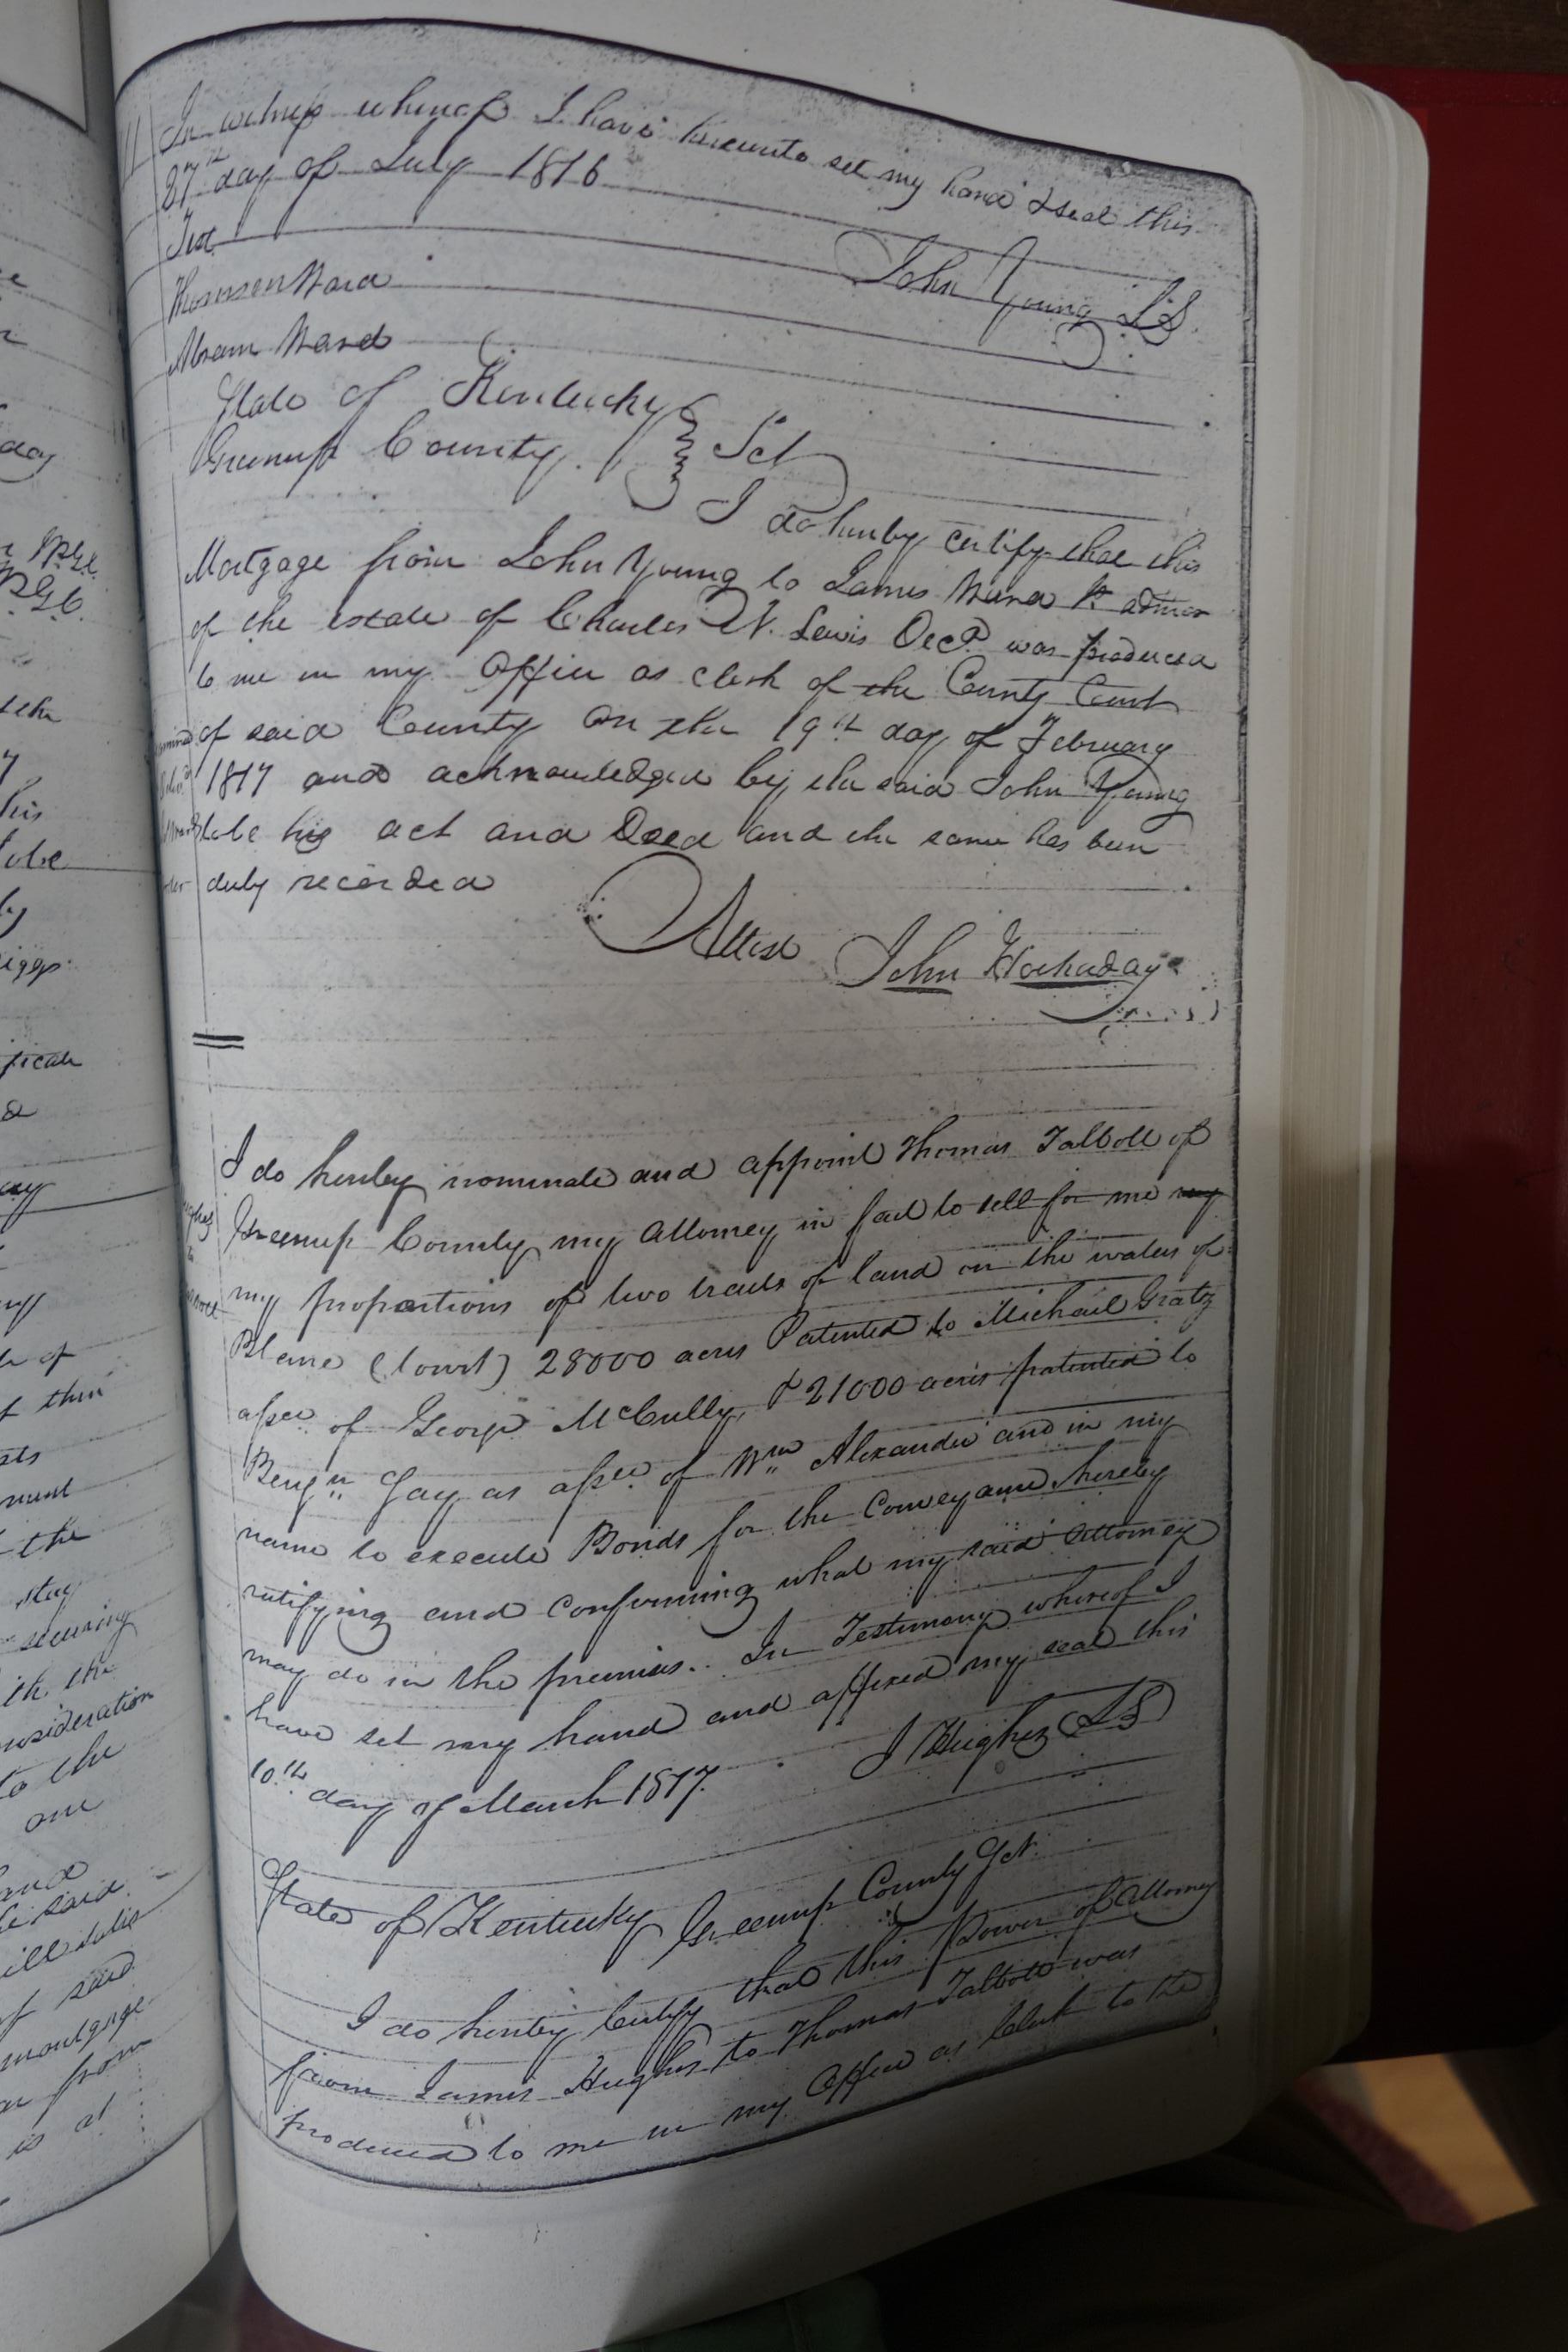 In witness whereof I have hereunto set my hand & seal this
27th day of July 1816
Test
John Young LS
Thomson Ward
Abram Ward
State of Kentucky
Greenup County. Sct
I do hereby certify that this
Mortgage from John Young to James Ward Jr admor
of the estate of Charles N. Lewis Decd was produced
to me in my office as clerk of the County Court
of said County on the 19th day of February
1817 and acknowledged by the said John Young
to be his act and Deed and the same has been
duly recorded
Attest John Hockaday
I do hereby nominate and appoint Thomas Talbott of
Greenup County my attorney in fact to sell for me my
my proportions of two tracts of land on the waters of
Blane (towit) 28000 acres Patented to Michael Gratz
assee of George McCully, & 21000 acres patented to
Benjn Gay as assee of Wm Alexander and in my
name to execute Bonds for the Conveyance hereby
ratifying and confirming what my said attorney
may do in the premises.. In Testimony whereof I
have set my hand and affixed my seal this
10th day of March 1817.
J Hughes (LS)
State of Kentucky Greenup County Sct.
I do hereby Certify that this Power of Attorney
from James Hughes to Thomas Talbott was
produced to me in my office as Clerk to the
day
iggs
ficate
of
the
stay
securing
ith the
nsideration
to the
one
and
said
of said
mortgage
from
is at